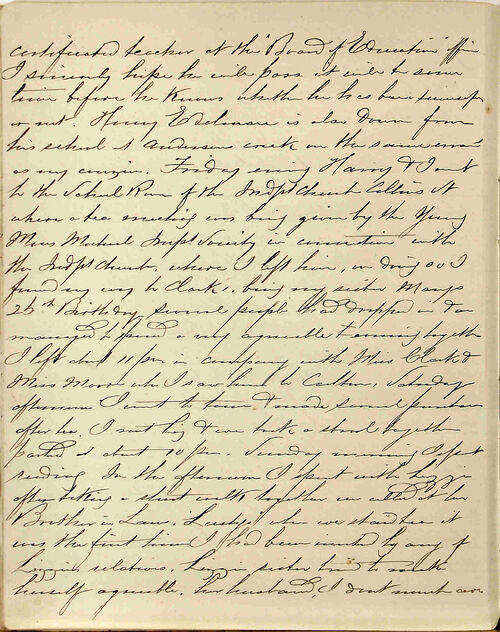 certificated teacher at the "Board of Education" office
I sincerely hope he will pass, it will be some
time before he knows whether he has been successful
or not. Henry is also down from
his school at Andersons creek on the same
as my cousin. Friday evening Harry & I went
to the School Room of the Indpt Church Collins St
where a tea meeting was being given by the Young
Mens Mutual Impt Society in connection with
the Indpt Church, where I left him, in doing so I
found my way to Clarks, being my sister Marys
26th Birthday, several people had dropped in & we
managed to spend a very agreeable evening together
I left about 11 pm in company with Miss Clark &
Miss who I saw home to Carlton. Saturday
afternoon I went to town & made several purchases
after tea, I met Liz & we took a stroll together
parted at about 10 pm. Sunday morning I spent
reading. In the afternoon I spent with Lizzie
after taking a short walk together we called at her
Brother in Laws, where we had tea it
was the first time I had been invited by any of
Lizzies relatives, Lizzies sister tried to make
herself agreeable, her husband, I dont much care